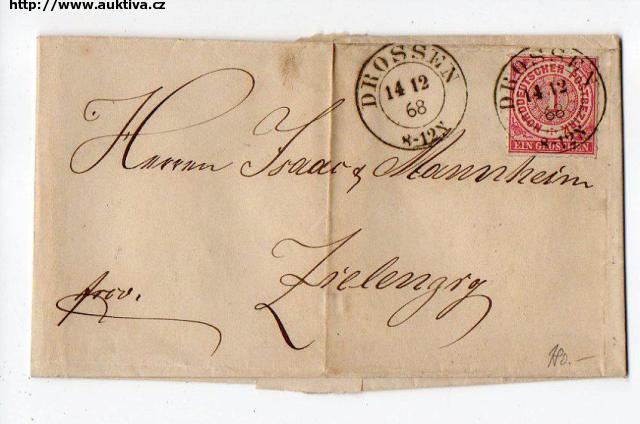 http://www.auktiva.cz
DROSSEN
14 12
68
8-12N
DROSSEN
14 12
68
8-12N
NORDDEUTSCHER POSTBEZIRK
1
EIN GROSCHEN
Herren Isaac & Mannheim
Zielenzig
frco.